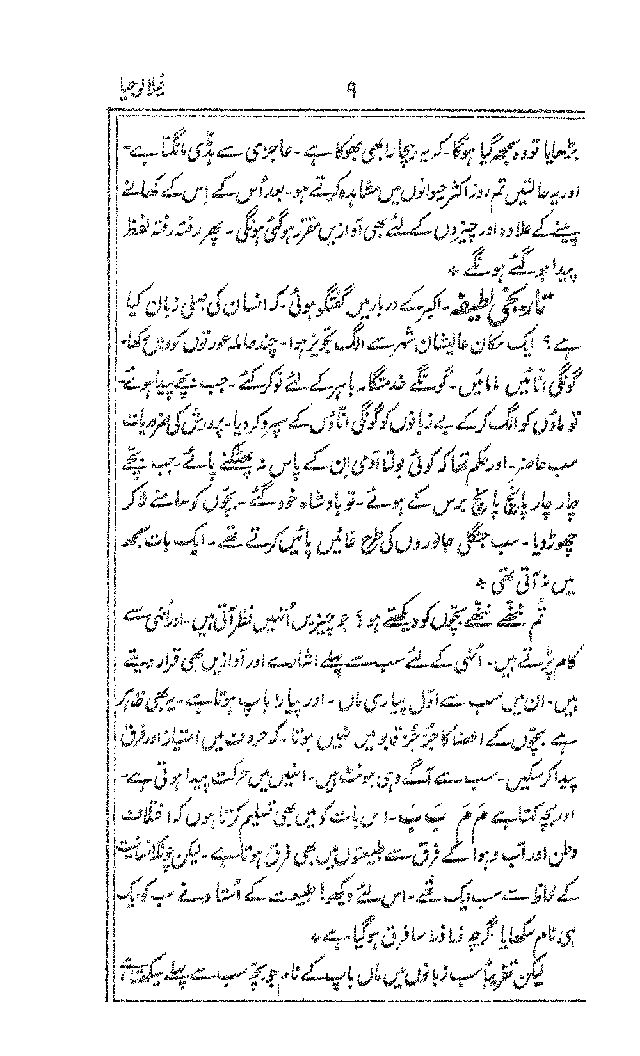 ۹
بڑھایا تو وہ سمجھ گیا ہوگا۔ کہ یہ بیچارا بھی بھوکا ہے۔ عاجزی سے ہڈی مانگتا ہے۔
اور یہ حالتیں تم روز اکثر حیوانوں میں مشاہدہ کرتے ہو۔ بعد اُس کے اس کے کھانے
پینے کے علاوہ اور چیزوں کے لئے بھی آوازیں مقرر ہو گئی ہونگی۔ پھر رفتہ رفتہ لفظ
پیدا ہو گئے ہونگے *
تاریخی لطیفہ۔ اکبر کے دربار میں گفتگو ہوئی۔ کہ انسان کی اصلی زبان کیا
ہے ؟ ایک مکان عالیشان شہر سے الگ تجویز ہوا۔ چند حاملہ عورتوں کو وہاں رکھا۔
گونگی انّائیں مامائیں۔ گونگے خدمتگار۔ باہر کے لئے نوکر گئے۔ جب بچے پیدا ہوئے۔
تو ماؤں کو الگ کر کے بے زبانوں کو گونگی انّاؤں کے سپرد کر دیا۔ پرورش کی ضروریات
سب حاضر۔ اور حکم تھا کہ کوئی بولتا آدمی ان کے پاس نہ پھٹکنے پائے۔ جب بچے
چار چار پانچ پانچ برس کے ہوئے۔ تو بادشاہ خود گئے۔ بچوں کو سامنے لا کر
چھوڑ دیا۔ سب جنگلی جانوروں کی طرح غائیں پائیں کرتے تھے۔ ایک بات سمجھ
میں نہ آتی تھی *
تم ننھے ننھے بچوں کو دیکھتے ہو ؟ جو چیزیں اُنہیں نظر آتی ہیں۔ اور اُنہی سے
کام پڑتے ہیں۔ اُنہی کے لئے سب سے پہلے اشارے اور آوازیں بھی قرار دیتے
ہیں۔ ان میں سب سے اوّل پیاری ماں۔ اور پیارا باپ ہوتا ہے۔ یہ بھی ظاہر
ہے بچوں کے اعضا کا جُز جُز قابو میں نہیں ہوتا۔ کہ حروف میں امتیاز اور فرق
پیدا کر سکیں۔ سب سے آگے وہی ہونٹ ہیں۔ انہیں میں حرکت پیدا ہوتی ہے۔
اور بچہ کہتا ہے مَم مَم بَب بَب۔ اس بات کو میں بھی تسلیم کرتا ہوں کہ اختلاف
وطن اور آب و ہوا کے فرق سے طبیعتوں میں بھی فرق ہوتا ہے۔ لیکن چونکہ انسانیت
کے لحاظ سے سب ایک تھے۔ اس لئے دیکھو! طبیعت کے اُستاد نے سب کو ایک
ہی نام سکھایا گرچہ ذرا ذرا سا فرق ہو گیا ہے *
لیکن تقریباً سب زبانوں میں ماں باپ کے نام جو بچہ سب سے پہلے سیکھتا ہے